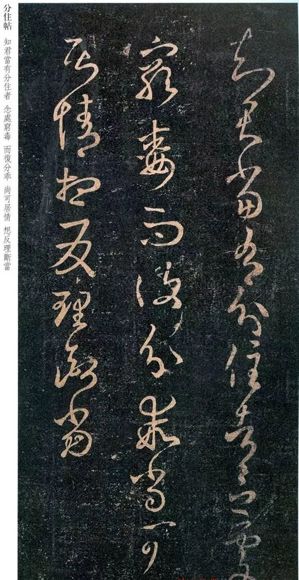 知君當有分住者念處
窮毒而復分乖尚可
居情想反理斷當
分住帖 知君當有分住者 念處窮毒 而復分乖 尚可居情 想反理斷當